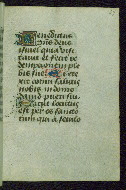 Benedictus
dominus deus
israel quia visi
tauit et fecit re
demptionem ple
bis sue Et ere
xit cornu salutis
nobis in domo
dauid pueri sui
Sicut locutus
est per os sancto
rum qui a seculo